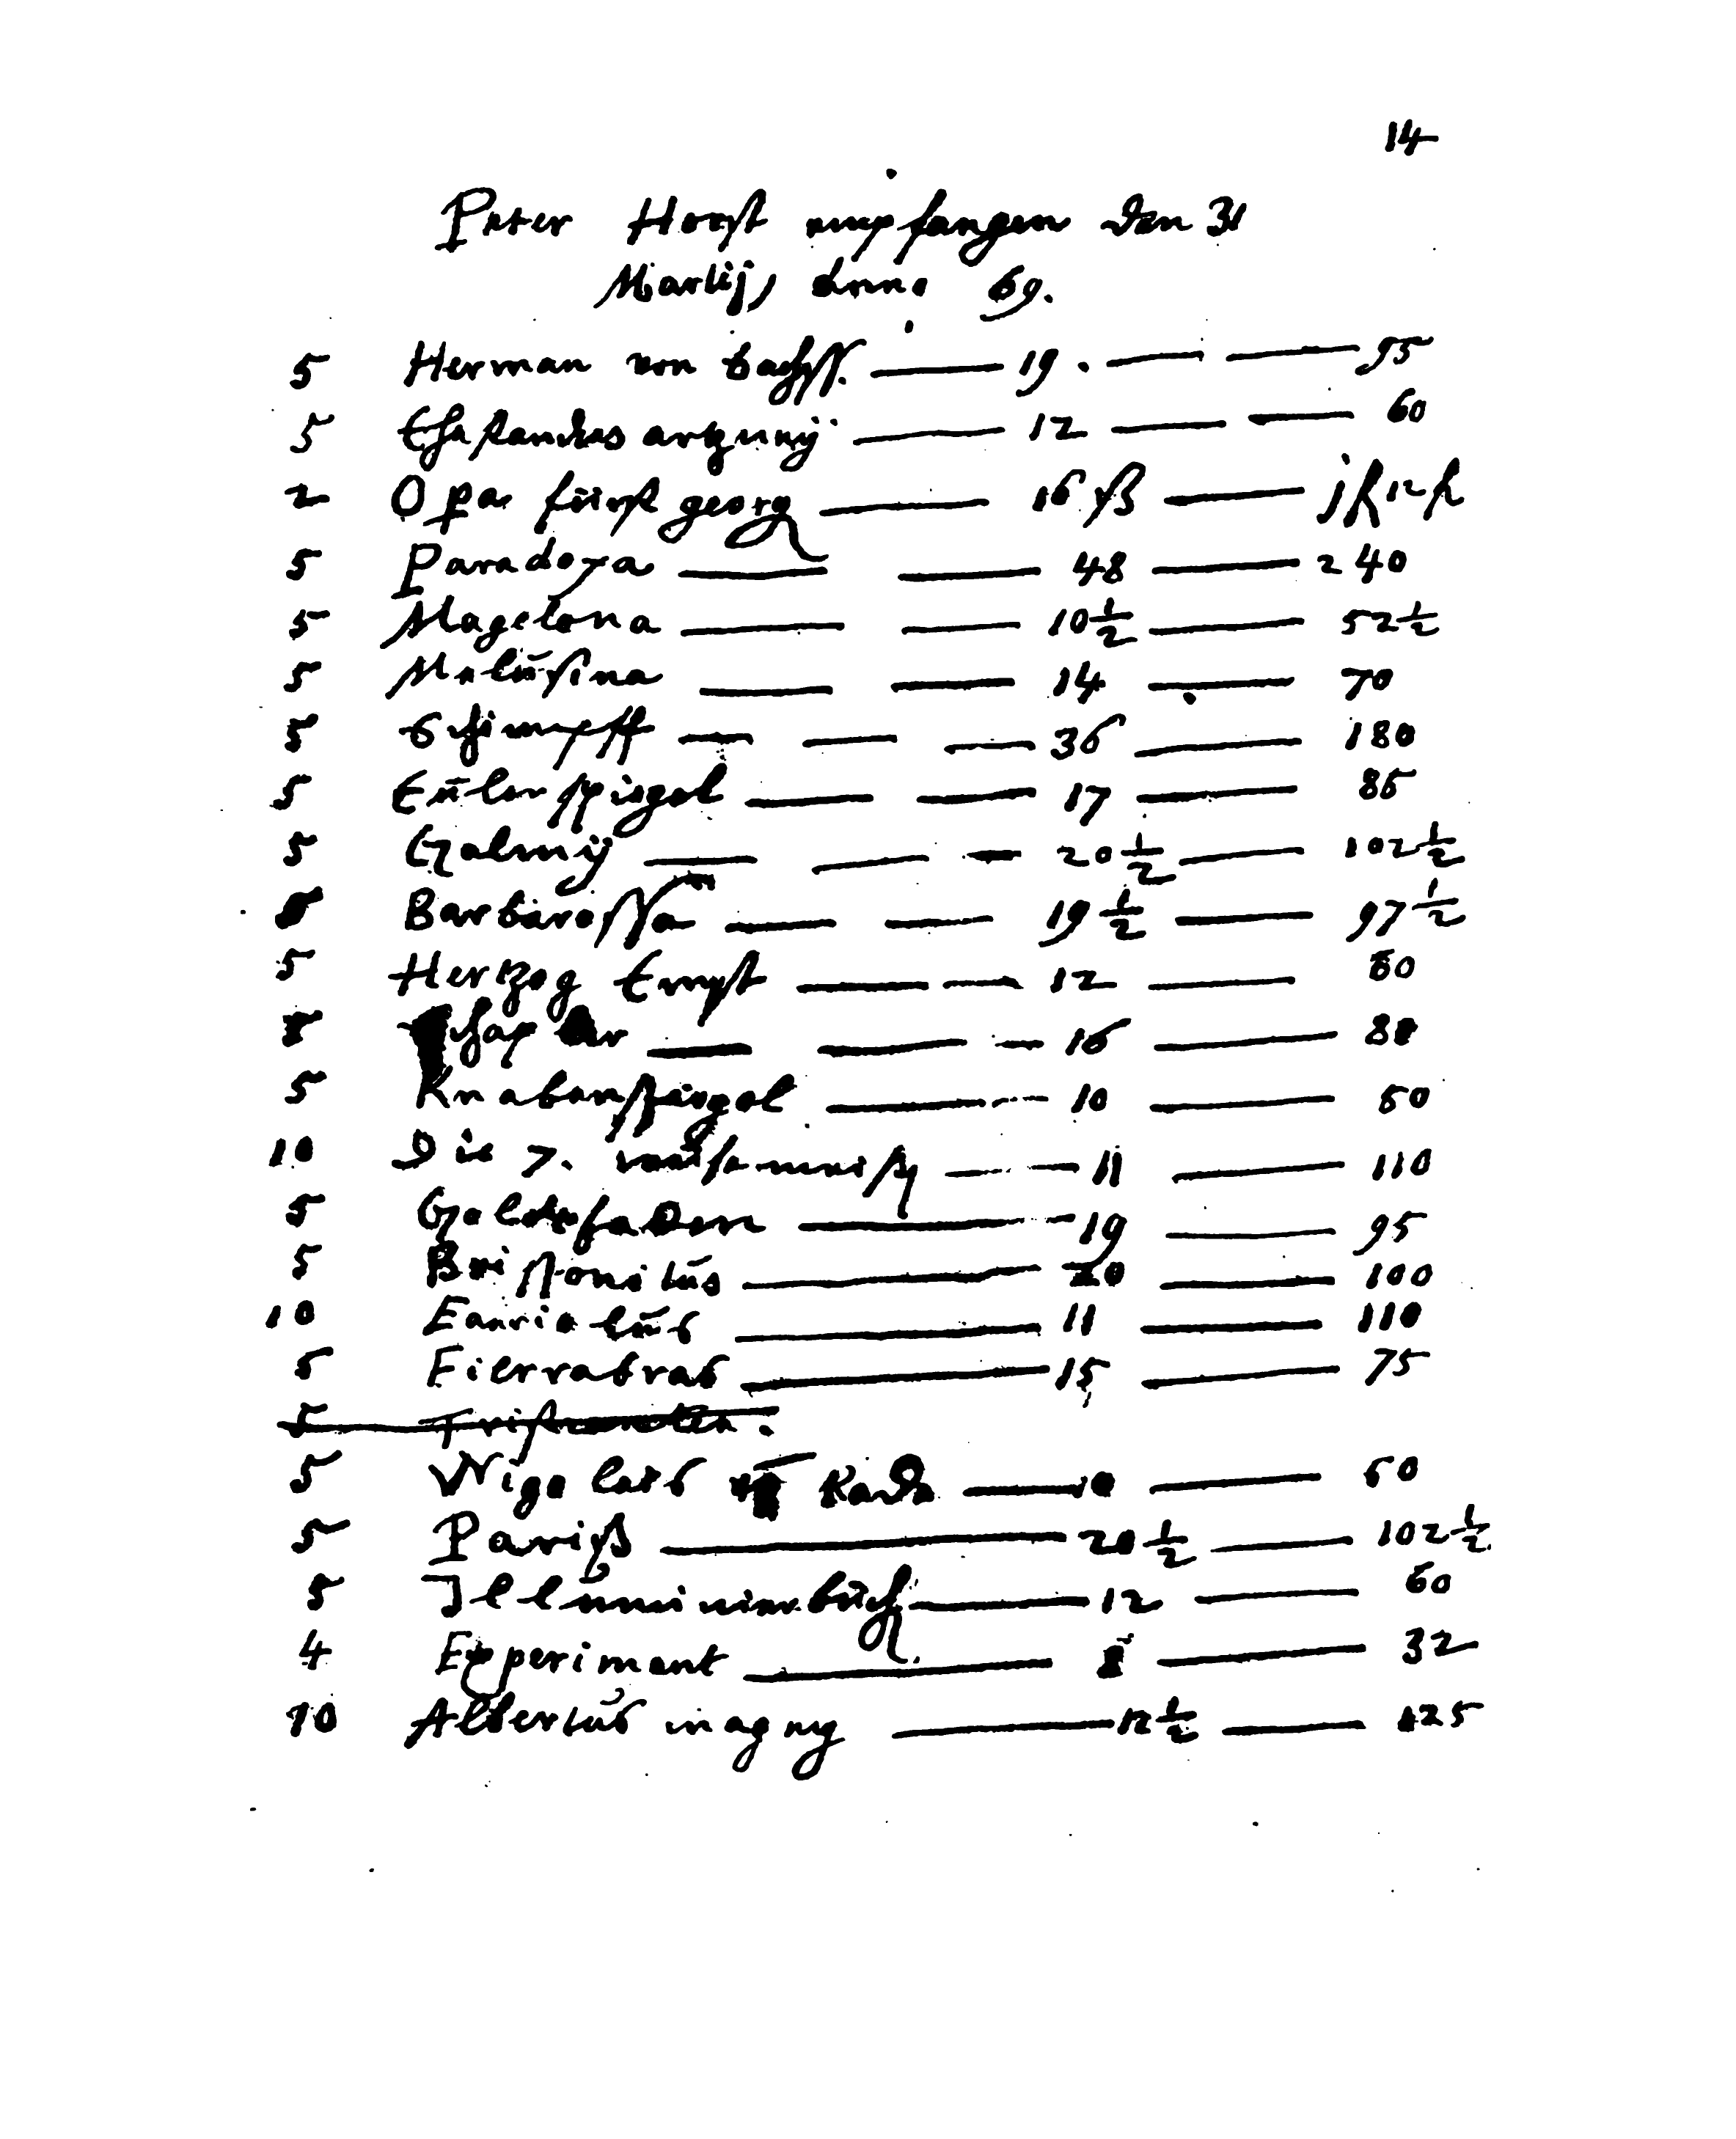 14
Peter Horst empfangen den 31
Martij, Anno 69.
5 Herman von Sachss. 19. 95
5 Ehstandes artzneij 12 60
2 Opa fürst georg 16 ß j fl 12 ß
5 Paradoxa 48 240
5 Magelona 10 1/2 52 1/2
5 Melusina 14 70
5 Schimpff 36 180
5 Eulenspiegel 17 85
5 Galmij 20 1/2 102 1/2
5 Barbarossa 19 1/2 97 1/2
5 Hertzog Ernst 12 60
5 16 80
5 Knabenspiegel 10 50
10 Die 7. weisenmeister 11 110
5 Goldtfaden 19 95
5 Brissonetus 20 100
10 Eurialus 11 110
5 Fierrabras 15 75
5 Tristranten.
5 Wigoleis vom Rade 10 50
5 Pariß 20 1/2 102 1/2
5 Illuminierbuch 12 60
4 Experiment 8 32
10 Albertus magnus 12 1/2 125